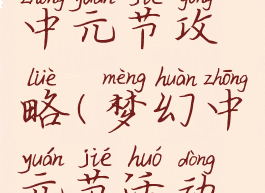 zhōng yuán jié gōng
中元节攻
lüè mèng huàn zhōng
略(梦幻中
yuán jié huó dòng
元节活动